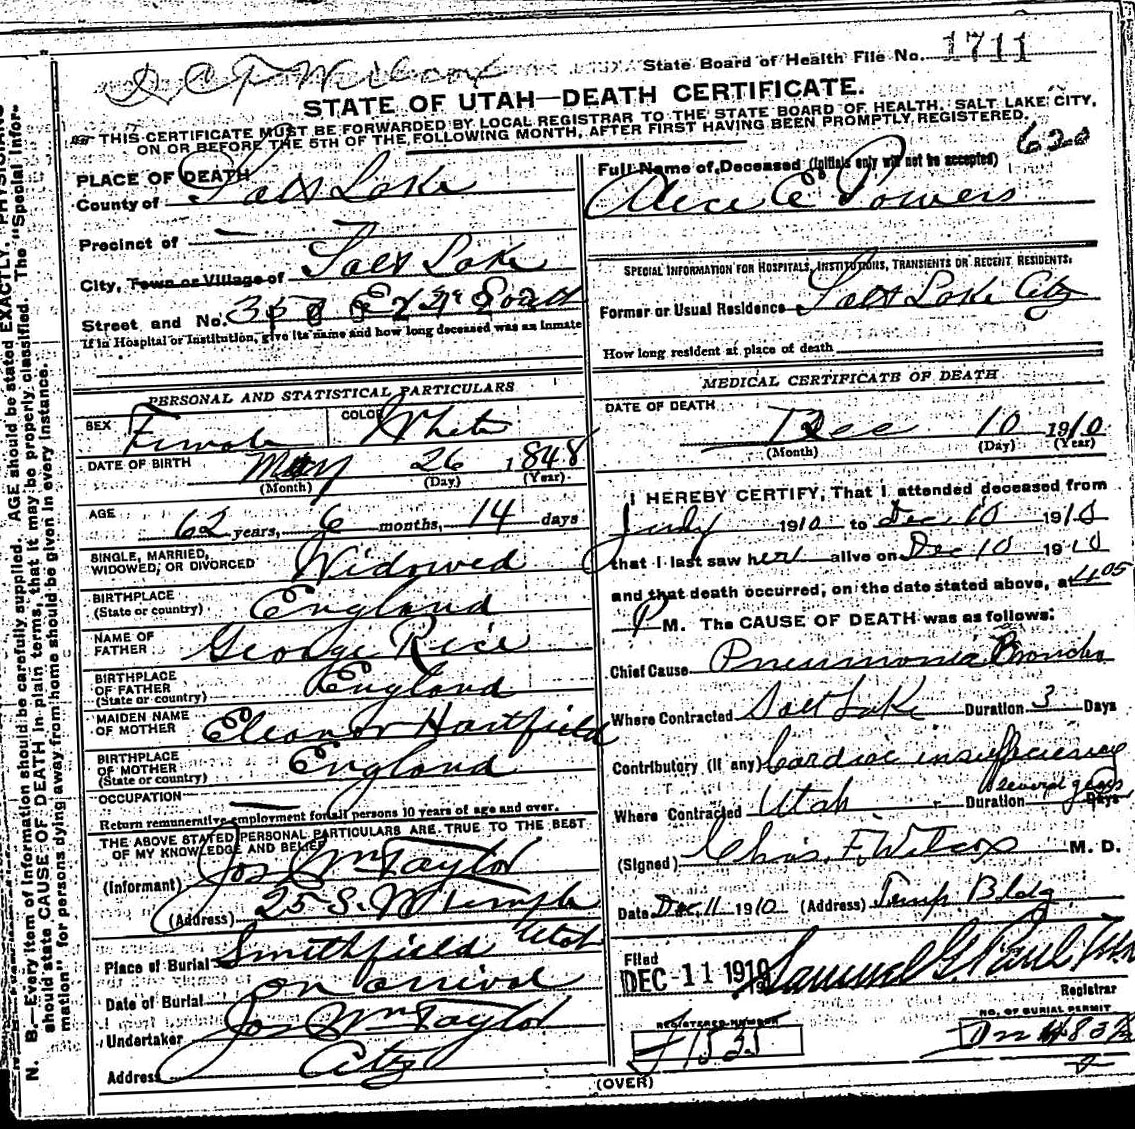 Dr C F Willcox
State Board of Health File No. 1711
STATE OF UTAH—DEATH CERTIFICATE.
THIS CERTIFICATE MUST BE FORWARDED BY LOCAL REGISTRAR TO THE STATE BOARD OF HEALTH, SALT LAKE CITY,
ON OR BEFORE THE 5TH OF THE FOLLOWING MONTH, AFTER FIRST HAVING BEEN PROMPTLY REGISTERED.
620
PLACE OF DEATH
County of Salt Lake
Precinct of —
City, Town or Village of Salt Lake
Street and No. E South
If in Hospital or Institution, give its name and how long deceased was an inmate
PERSONAL AND STATISTICAL PARTICULARS
SEX Female COLOR White
DATE OF BIRTH May 26 1848
(Month) (Day) (Year)
AGE 62 years, 6 months, 14 days
SINGLE, MARRIED,
WIDOWED, OR DIVORCED Widowed
BIRTHPLACE
(State or country) England
NAME OF
FATHER George Rice
BIRTHPLACE
OF FATHER
(State or country) England
MAIDEN NAME
OF MOTHER Eleanor Hartfield
BIRTHPLACE
OF MOTHER
(State or country) England
OCCUPATION —
Return remunerative employment for all persons 10 years of age and over.
THE ABOVE STATED PERSONAL PARTICULARS ARE TRUE TO THE BEST
OF MY KNOWLEDGE AND BELIEF
(Informant) Jos Wm Taylor
(Address) 25 S. W Temple
Place of Burial Smithfield Utah
Date of Burial on arrival
Undertaker Jos Wm Taylor
Address City
Full Name of Deceased (Initials only will not be accepted)
Alice E Powers
SPECIAL INFORMATION FOR HOSPITALS, INSTITUTIONS, TRANSIENTS OR RECENT RESIDENTS.
Former or Usual Residence Salt Lake City
How long resident at place of death
MEDICAL CERTIFICATE OF DEATH
DATE OF DEATH
Dec 10 1910
(Month) (Day) (Year)
I HEREBY CERTIFY, That I attended deceased from
July 1910 to Dec. 10 1910
that I last saw her alive on Dec 10 1910
and that death occurred, on the date stated above, at 4 05
P M. The CAUSE OF DEATH was as follows:
Chief Cause Pneumonia Broncho
Where Contracted Salt Lake Duration 3 Days
Contributory (if any) Cardiac insufficiency
Where Contracted Utah Duration several years Days
(Signed) Chas. F. Wilcox M. D.
Date Dec. 11 1910 (Address) Temp Bldg
Filed
DEC 11 1910 Samuel G. Paul
Registrar
REGISTERED NUMBER
NO. OF BURIAL PERMIT
(OVER)
N. B.—Every item of information should be carefully supplied. AGE should be stated EXACTLY. PHYSICIANS
should state CAUSE OF DEATH in plain terms, that it may be properly classified. The "Special Infor-
mation" for persons dying away from home should be given in every instance.